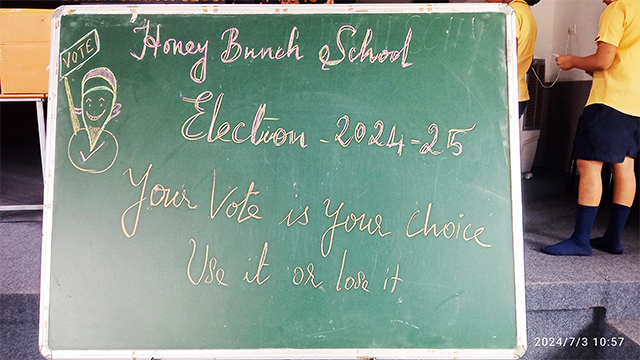 VOTE
Honey Bunch School
Election - 2024-25
Your Vote is Your choice
Use it or lose it
2024/7/3 10:57